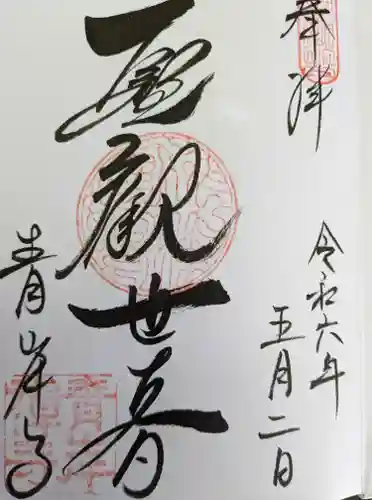 奉拝
令和六年
五月二日
聖観世音
青岸寺